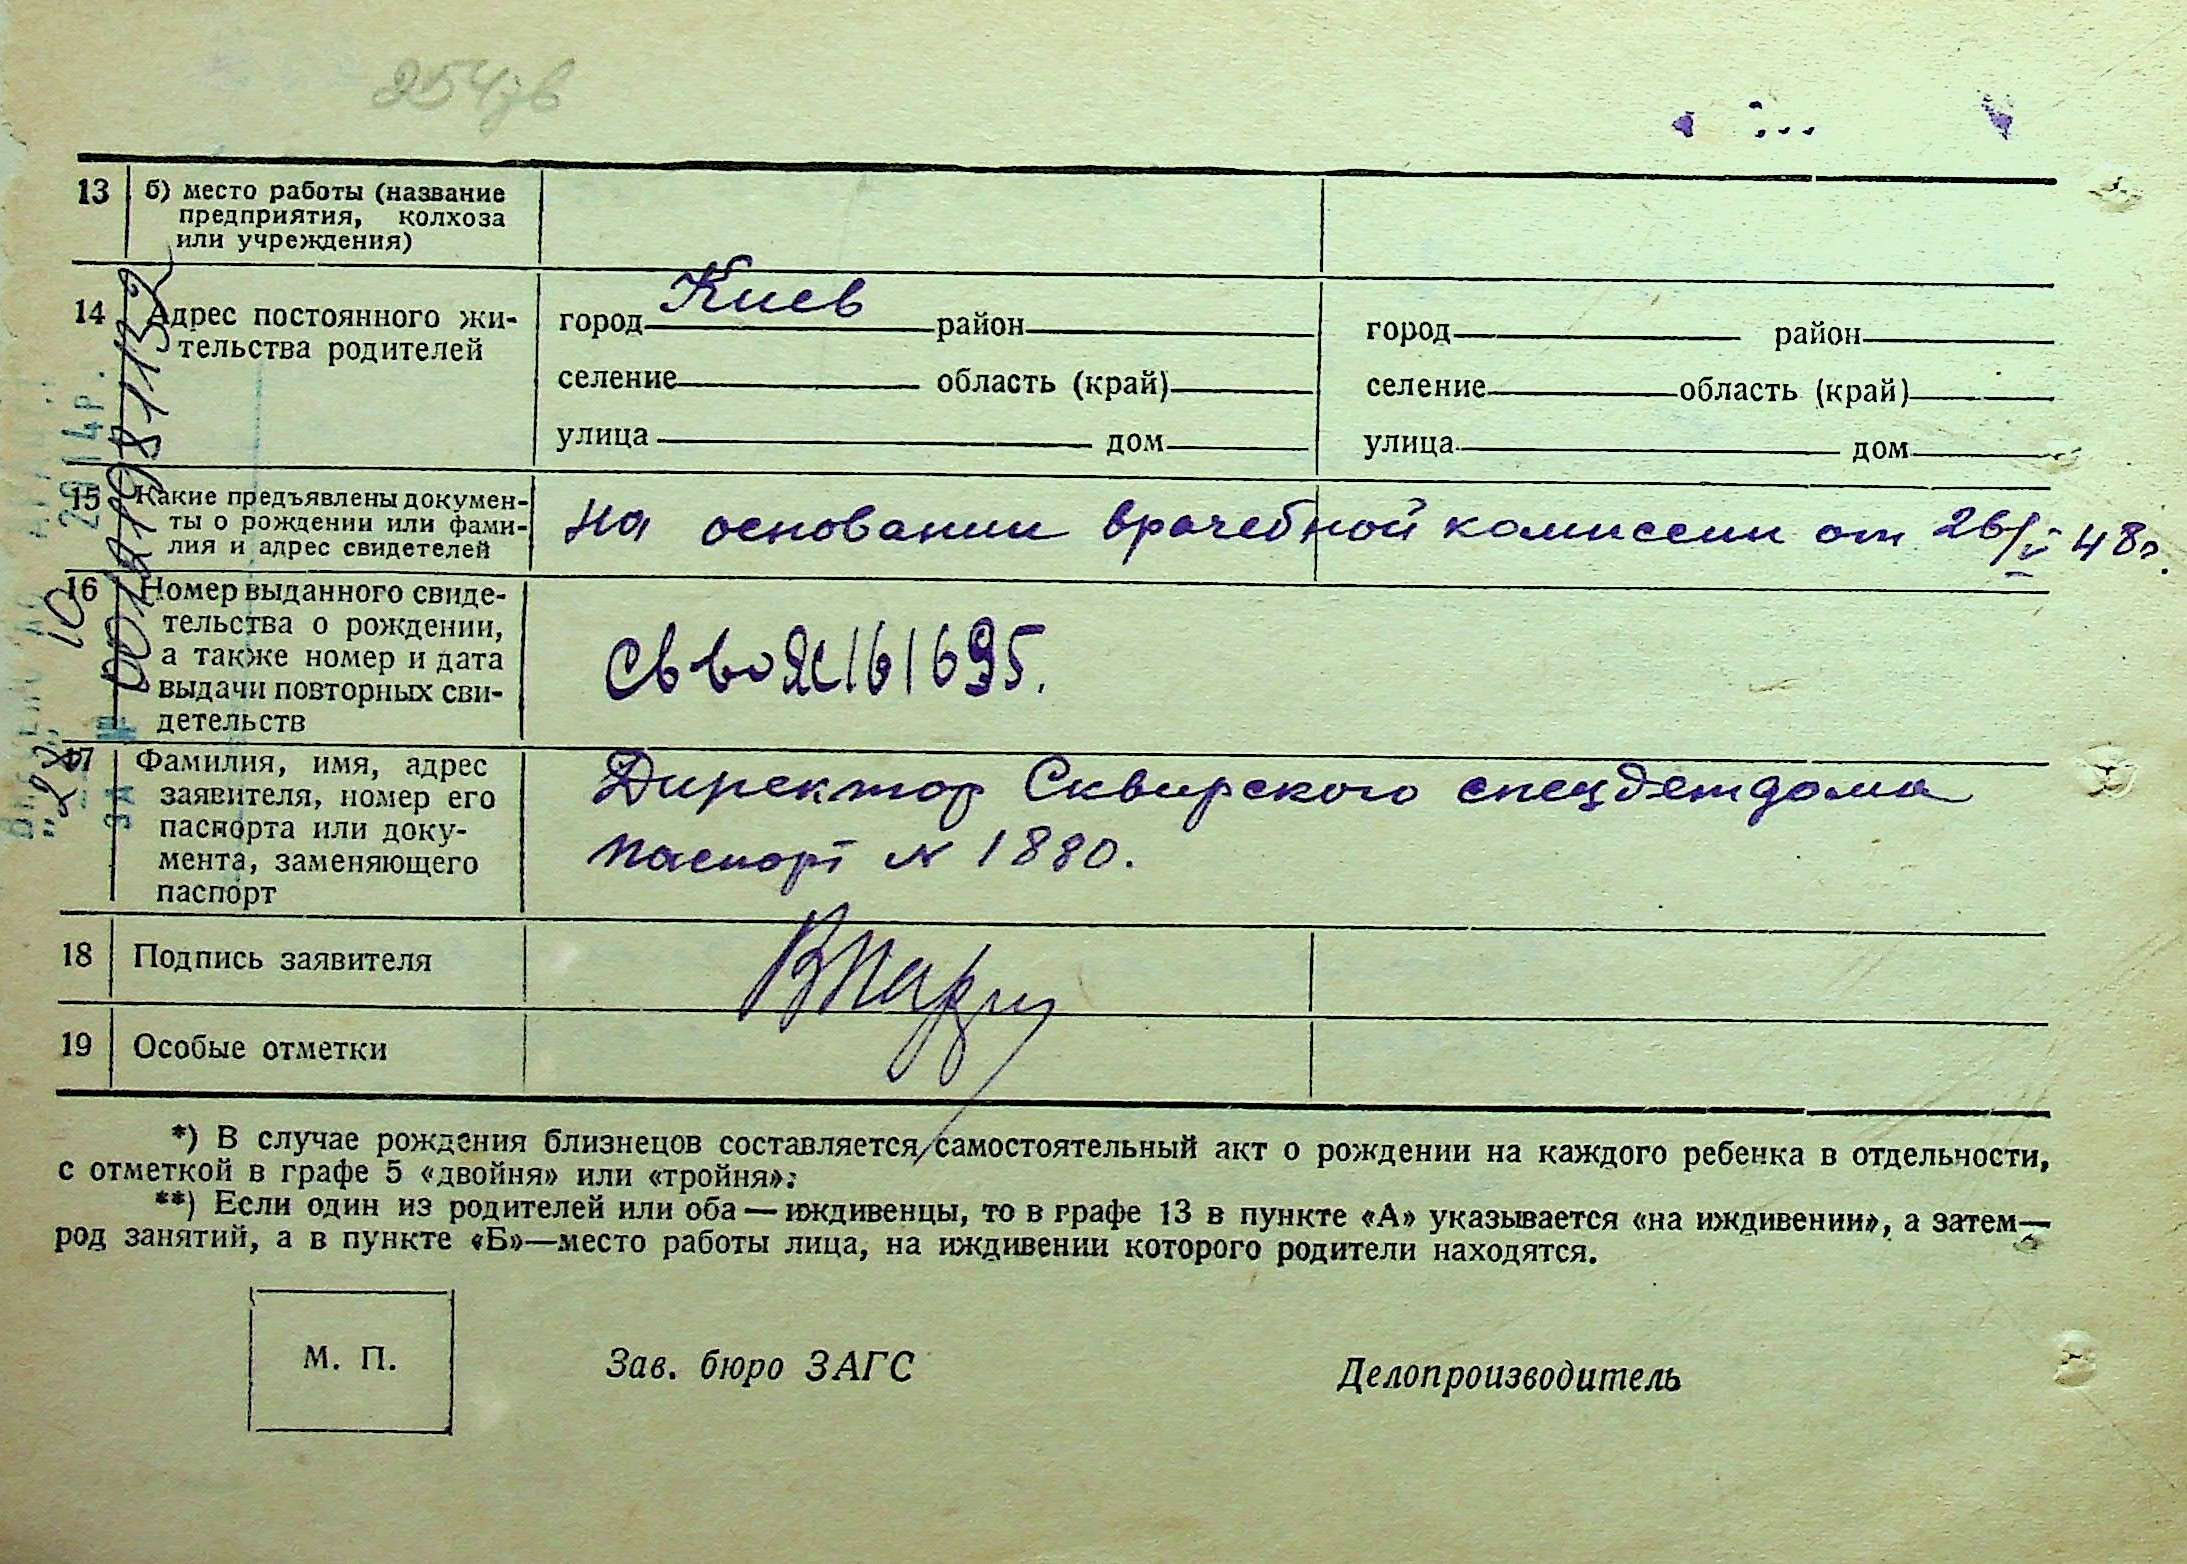 254зв
13 б) место работы (название
предприятия, колхоза
или учреждения)
14 Адрес постоянного жи-
тельства родителей
город Киев район
селение область (край)
улица дом
город район
селение область (край)
улица дом
15 Какие предъявлены докумен-
ты о рождении или фами-
лия и адрес свидетелей
На основании врачебной комиссии от 26/V 48г.
16 Номер выданного свиде-
тельства о рождении,
а также номер и дата
выдачи повторных сви-
детельств
161695.
17 Фамилия, имя, адрес
заявителя, номер его
паспорта или доку-
мента, заменяющего
паспорт
Директор Сквирского спецдетдома
паспорт № 1880.
18 Подпись заявителя
19 Особые отметки
*) В случае рождения близнецов составляется самостоятельный акт о рождении на каждого ребенка в отдельности,
с отметкой в графе 5 «двойня» или «тройня»:
**) Если один из родителей или оба — иждивенцы, то в графе 13 в пункте «А» указывается «на иждивении», а затем—
род занятий, а в пункте «Б»—место работы лица, на иждивении которого родители находятся.
М. П.
Зав. бюро ЗАГС
Делопроизводитель